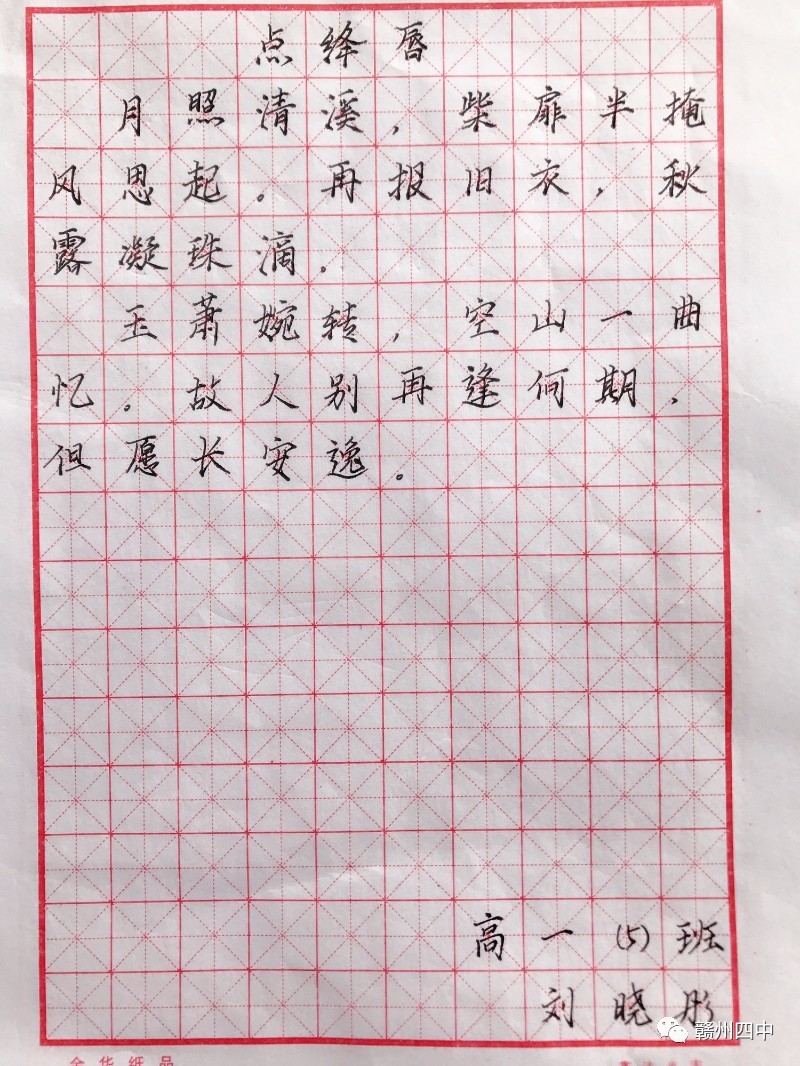 点绛唇
月照清溪，柴扉半掩
风思起。再报旧衣，秋
露凝珠滴。
玉萧婉转，空山一曲
忆。故人别再逢何期，
但愿长安逸。
高一(5)班
刘晓彤
赣州四中
金华纸品